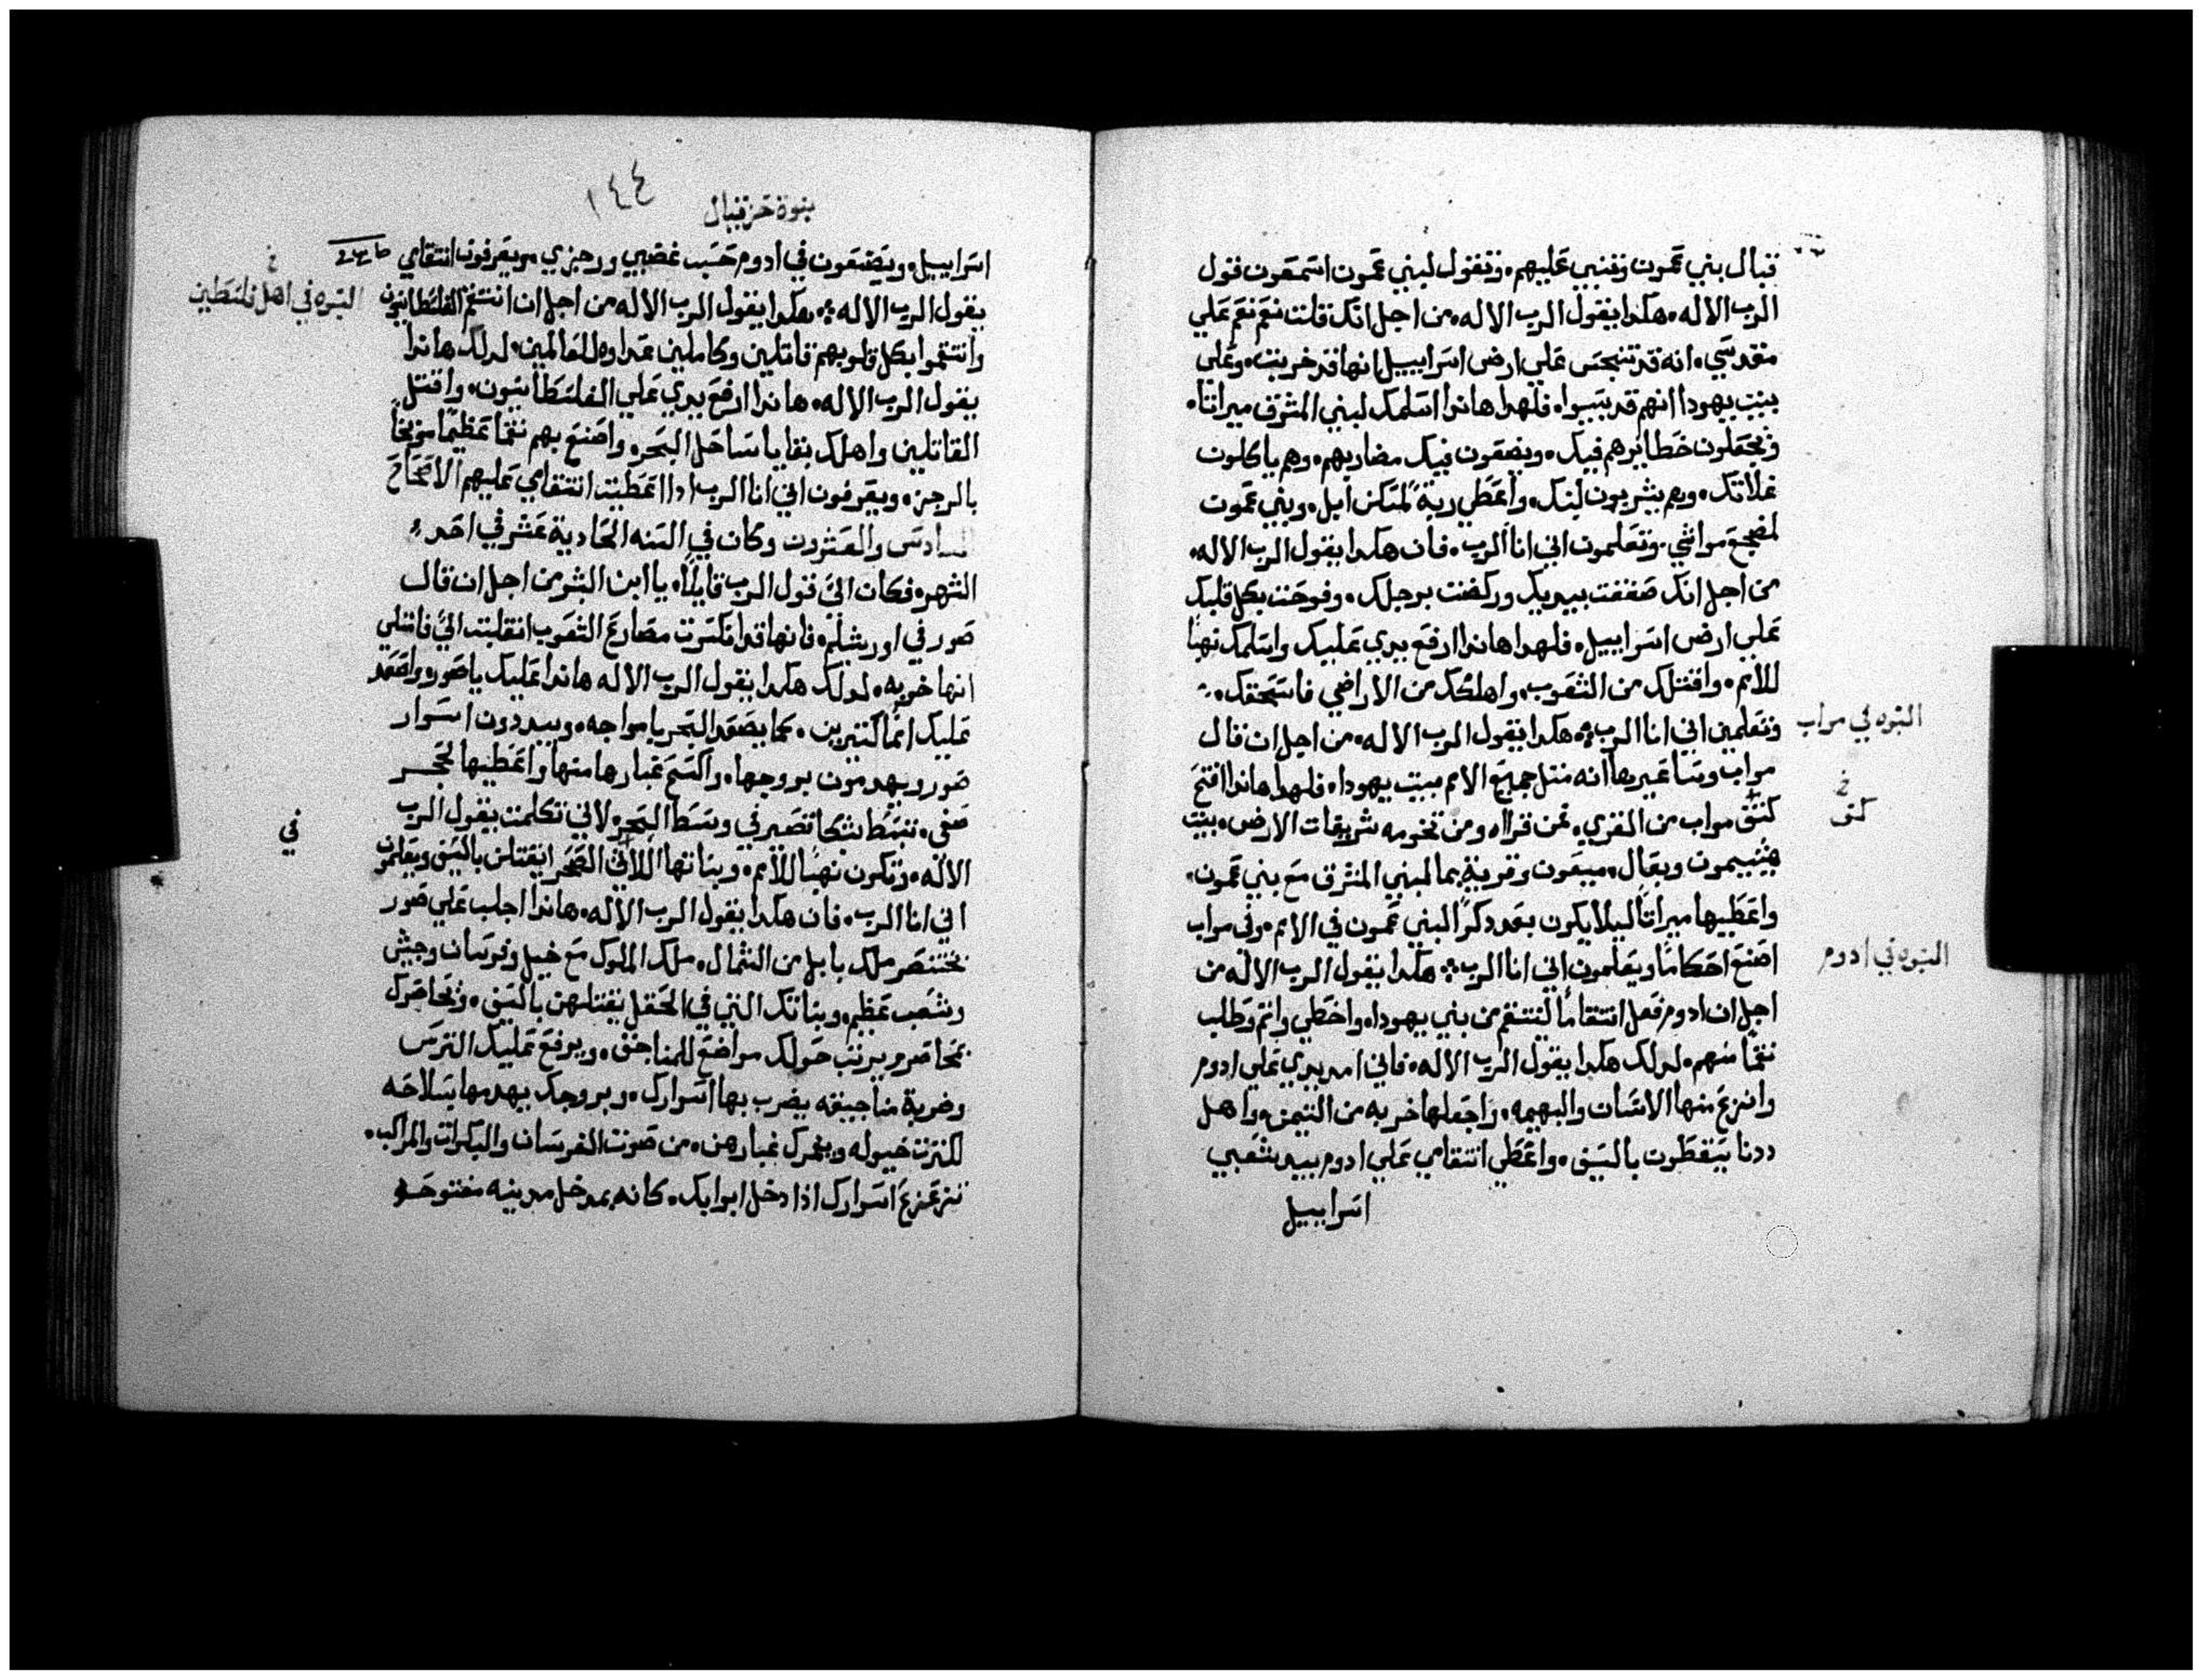 قبال بني عمون وتنبي عليهم، وتقول لبني عمون اسمعون قول
الرب الاله، هكدا يقول الرب الاله، من اجل انك قلت نعم نعم علي
مقدسي، انه قد تنجس علي ارض اسراييل انها قد خربت، وعلي
بيت يهودا انهم قد سبيوا، فلهدا هاندا اسلمك لبني المشرق ميراتا،
فيجعلون خطايرهم فيك، ويضعون فيك مضاربهم، وهم ياكلون
غلاتك، وهم يشربون لبنك، واعطي ربة لمسكن ابل، وبني عمون
لمضجع مواشي، وتعلمون اني انا الرب، فان هكدا يقول الرب الاله،
من اجل انك صفقت بيديك وركضت برجلك، وفرحت بكل قلبك
علي ارض اسراييل، فلهدا هاندا ارفع يدي عليك واسلمك نهبا
للامم، واقتلك من الشعوب، واهلكك من الاراضي فاسحقك،
وتعلمين اني انا الرب؛ هكدا يقول الرب الاله، من اجل ان قال
النبوه في مواب
مواب وساعير ها انه متل جميع الامم بيت يهودا، فلهدا هاندا افتح
كتف مواب من القري، عن قراه ومن تخومه شريفات الارض، بيت
خ
كتف
هيشيمون وبعال، ميعون وقرية يما لبني المشرق مع بني عمون،
واعطيها ميراتا ليلا يكون بعد دكرا لبني عمون في الامم، وفي مواب
اصنع احكاما ويعلمون اني انا الرب؛ هكدا يقول الرب الاله من
النبوه في ادوم
اجل ان ادوم فعل انتقاما لتنتقم من بني يهودا، واخطي واتم وطلب
نقما منهم، لدلك هكدا يقول الرب الاله، فاني امد يدي علي ادوم
وانزع منها الانسان والبهيمه، واجعلها خربه من التيمن، واهل
ددنا يسقطون بالسيف، واعطي انتقامي علي ادوم بيد شعبي
اسراييل
نبوة حزقيال
١٤٤
اسراييل، ويصنعون في ادوم حسب غضبي ورجزي، ويعرفون انتقامي
يقول الرب الاله؛ هكدا يقول الرب الاله من اجل ان انتقم الفلسطانيون
خ
النبوه في اهل فلسطين
وانتقموا بكل قلوبهم قاتلين وكاملين عداوه للعالمين، لدلك هاندا
يقول الرب الاله، هاندا ارفع يدي علي الفلسطانيون، واقتل
القاتلين واهلك بقايا ساحل البحر، واصنع بهم نقما عظيما موبخا
بالرجز، ويعرفون اني انا الرب ادا اعطيت انتقامي عليهم الاصحاح
السادس والعشرون وكان في السنه الحادية عشر في احد
الشهر، فكان الي قول الرب قايلا، يا ابن البشر من اجل ان قال
صور في اورشليم، فانها قد انكسرت مصارع الشعوب انقلبت الي فامتلي
انها خربه، لدلك هكدا يقول الرب الاله هاندا عليك يا صور، واصعد
عليك امما كتيرين، كما يصعد البحر بامواجه، ويبددون اسوار
صور، ويهدمون بروجها، واكسح غبارها منها واعطيها لحجر
صفي، تنبسط شبكا تصير في وسط البحر، لاني تكلمت يقول الرب
في
الاله، وتكون نهبا للامم، وبناتها اللاتي الصحرا يقتلن بالسيف ويعلمون
اني انا الرب، فان هكدا يقول الرب الاله، هاندا اجلب علي صور
بختنصر ملك بابل من الشمال، ملك الملوك مع خيل وفرسان وجيش
وشعب عظيم، وبناتك التي في الحقل يقتلهن بالسيف، ويحاصرك
بمحاصر ويرتب حولك مواضع للمناجنق، ويرفع عليك الترس
وضربة مناجنيقه يضرب بها اسوارك، وبروجك يهدمها بسلاحه
لكترت خيوله ويغمرك غبارهن، من صوت الفرسان والبكرات والمراكب،
تتزعزع اسوارك اذا دخل ابوابك، كانه بمدخل مدينه مفتوحه